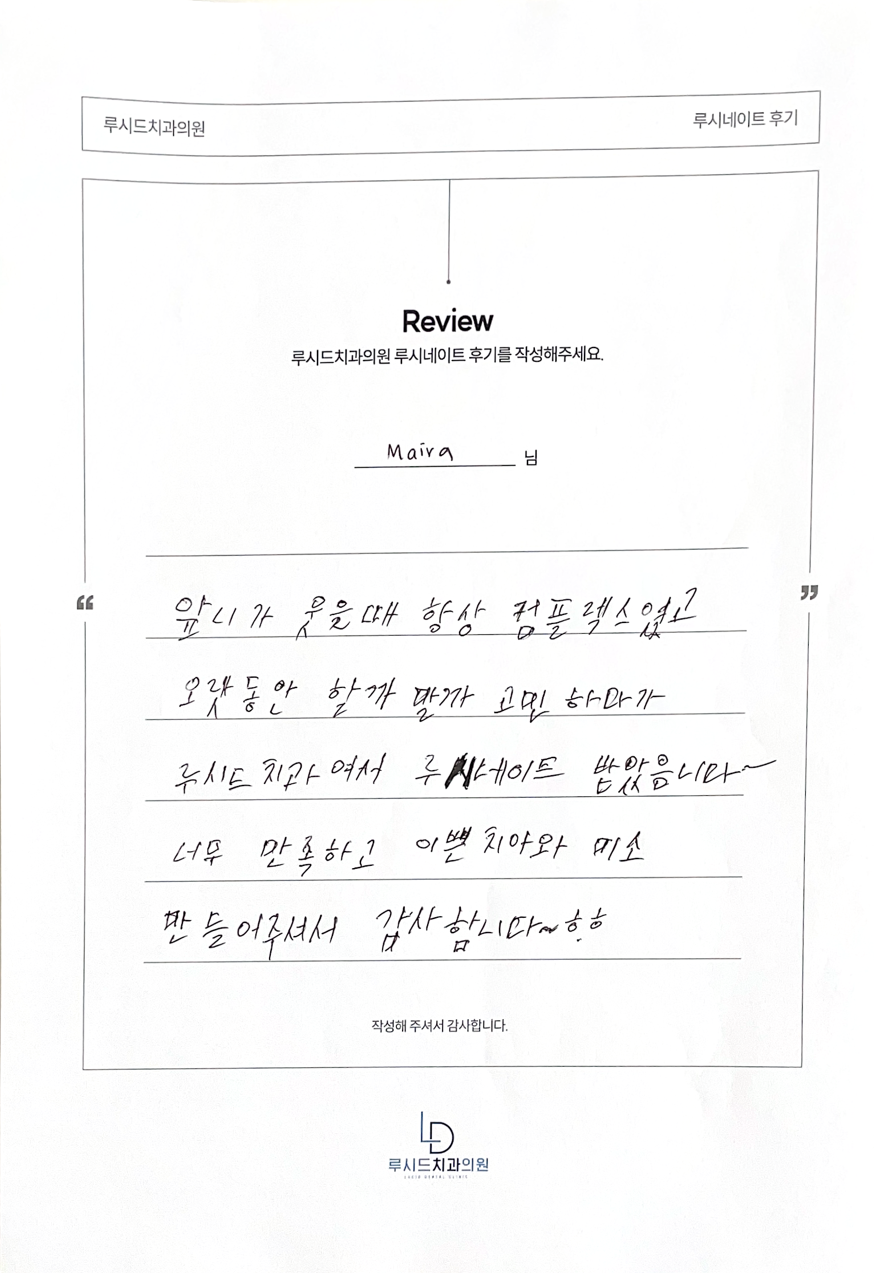 루시드치과의원
루시네이트 후기
Review
루시드치과의원 루시네이트 후기를 작성해주세요.
Maira 님
“
”
앞니가 웃을때 항상 컴플렉스였고
오랫동안 할까 말까 고민 하다가
루시드 치과 여서 루시네이트 받았습니다~
너무 만족하고 이쁜 치아와 미소
만들어주셔서 감사합니다~ㅎㅎ
작성해 주셔서 감사합니다.
LD
루시드치과의원
LUCID DENTAL CLINIC